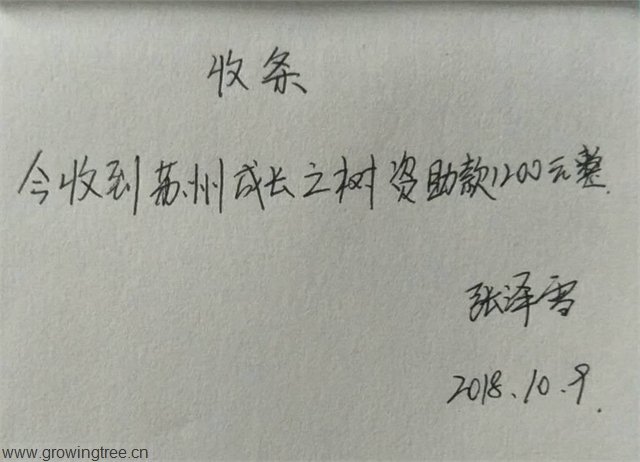 收条
今收到苏州成长之树资助款1200元整.
张泽雪
2018.10.9.
www.growingtree.cn